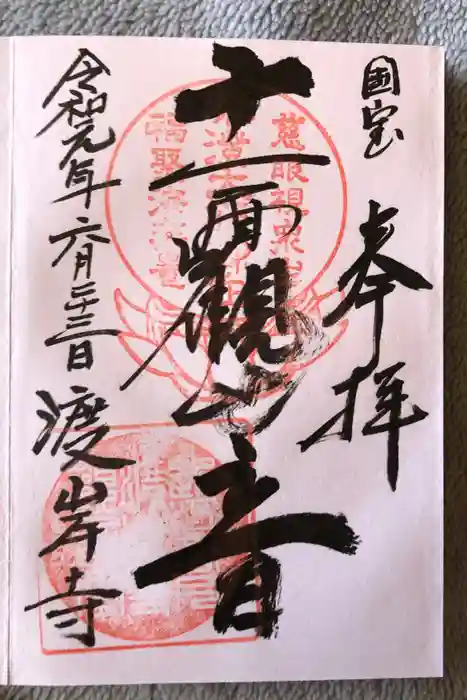 国宝
奉拝
十一面觀音
令和元年六月二十三日
渡岸寺
慈眼視衆生
福聚海無量